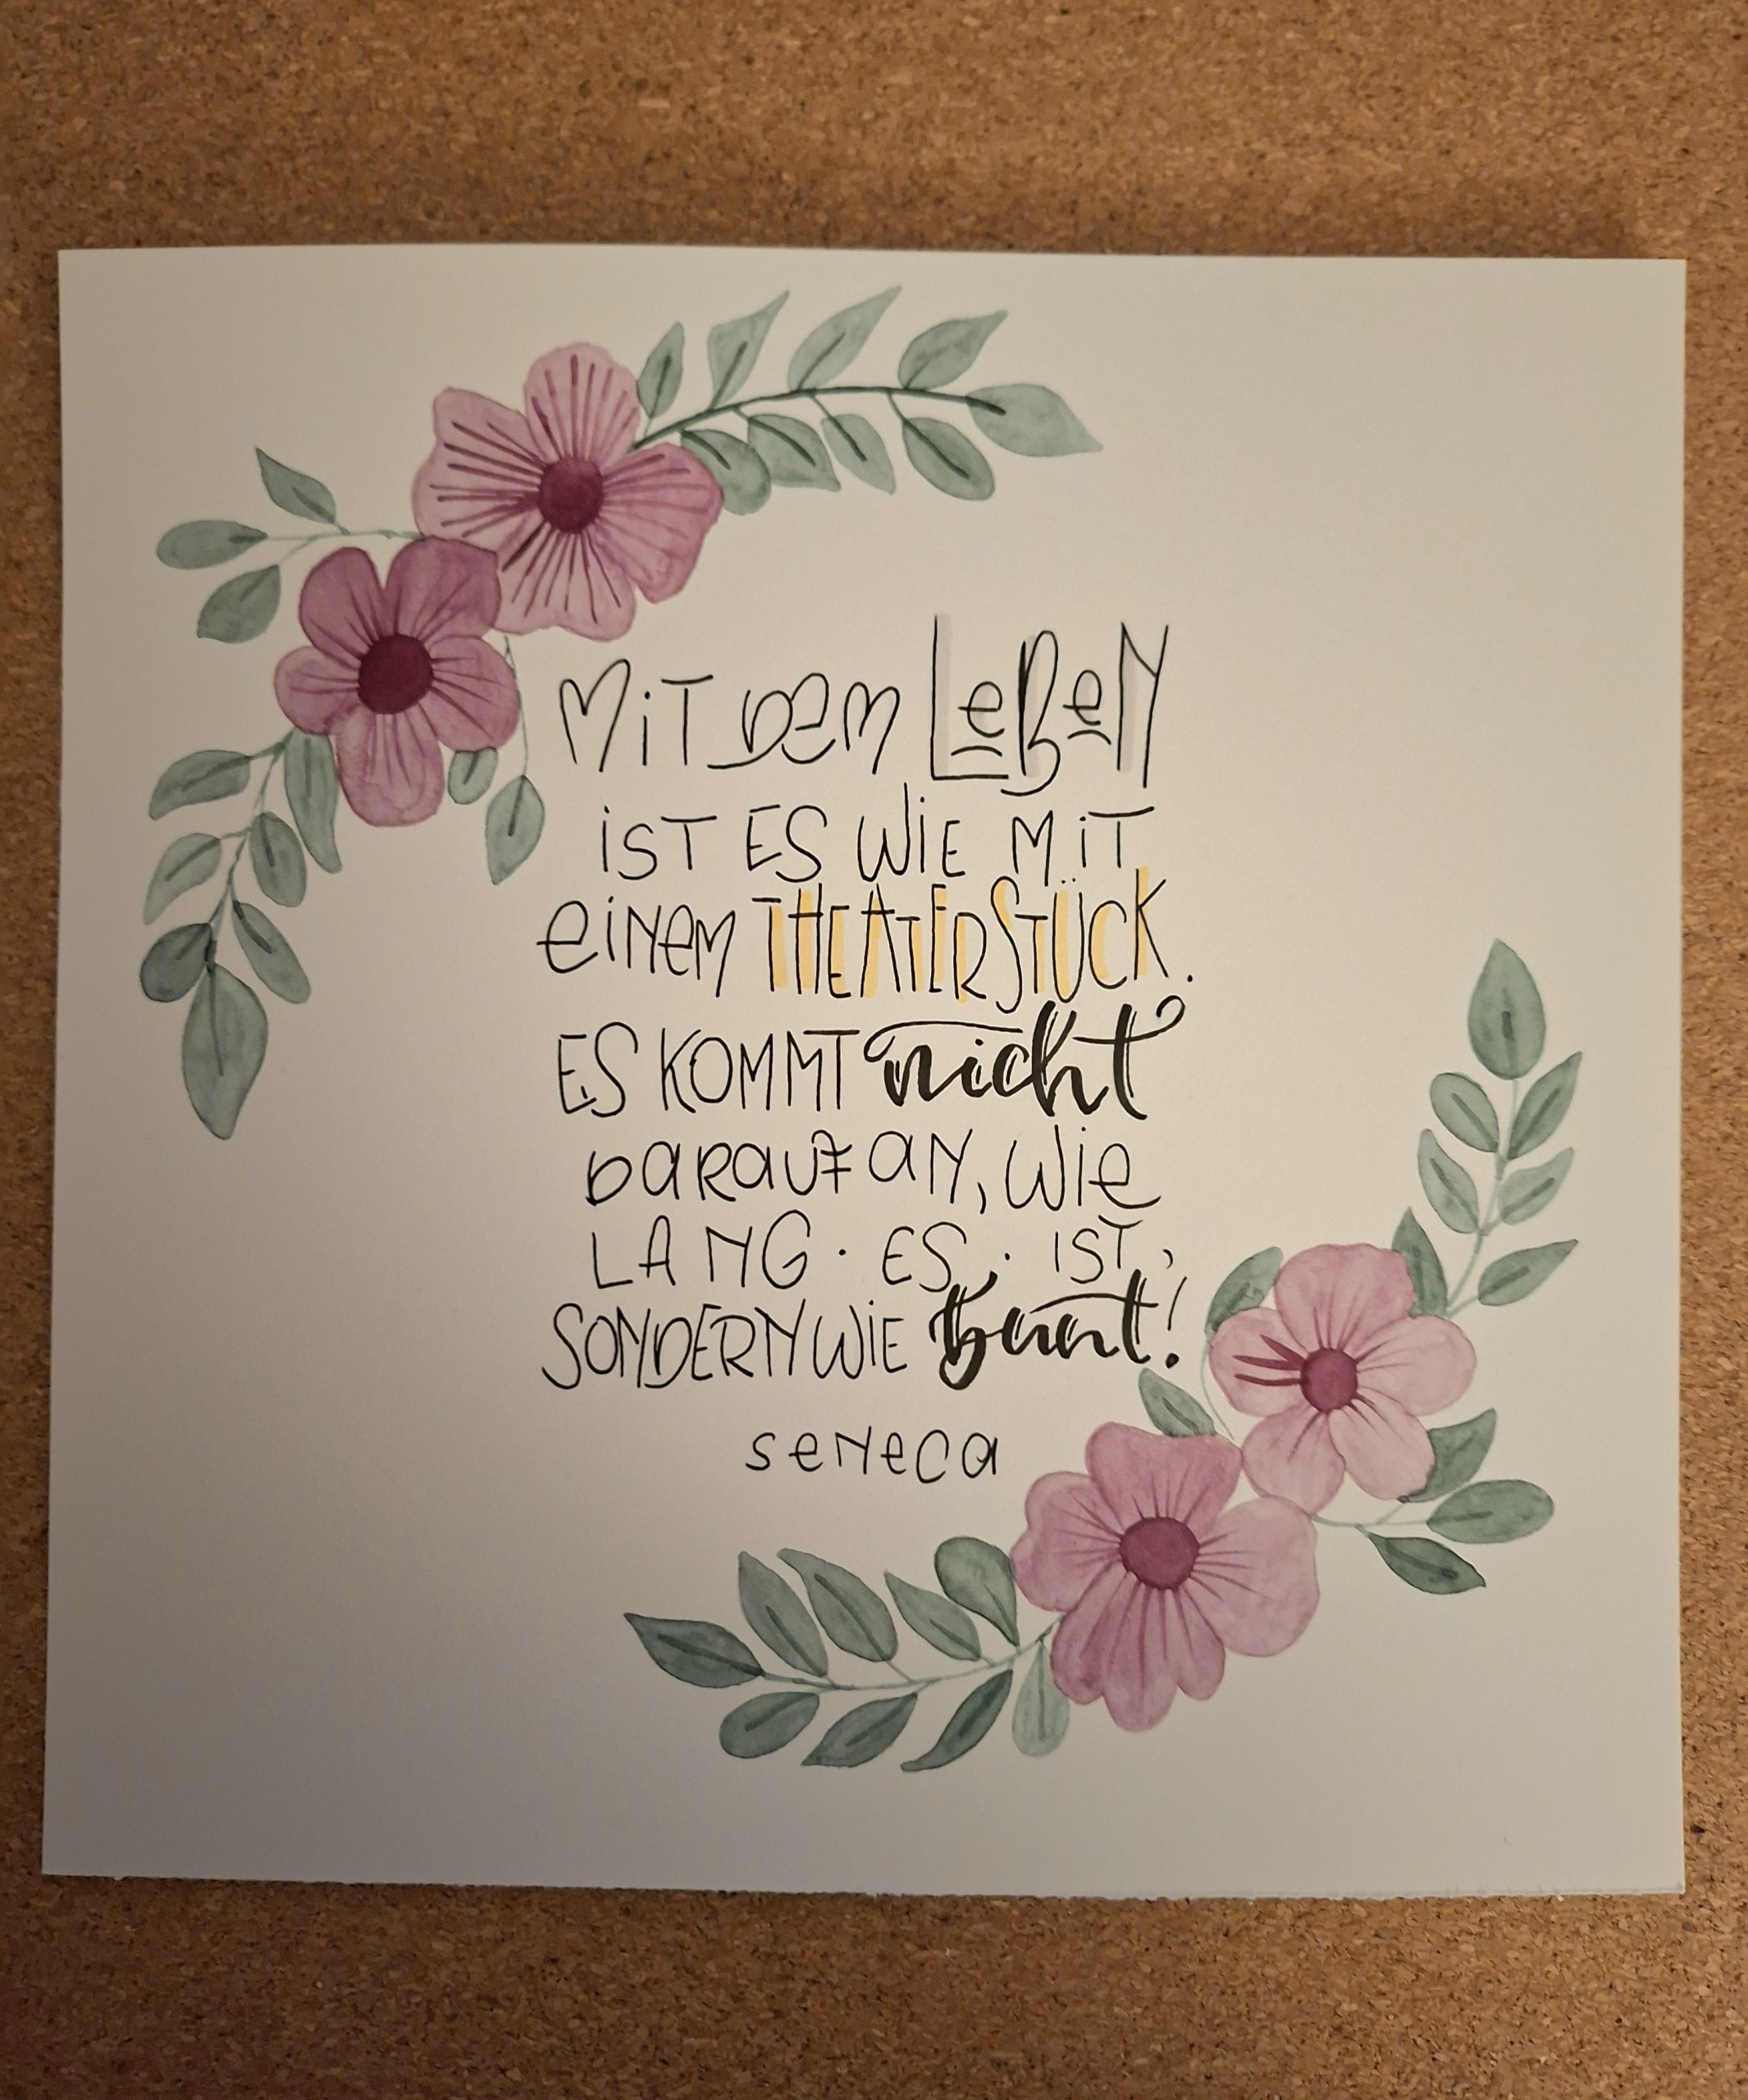 MiT DEM LeBeN
iST ES WiE MiT
eiNem THEATERSTÜCK.
ES KOMMT nicht
DARAUF AN, Wie
LANG · ES · IST,
SONDERN WiE Bunt!
seneca